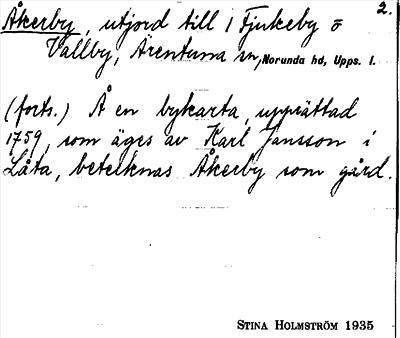 2.
Åkerby, utjord till Fjukeby o
Vallby, Ärentuna sn, Norunda hd, Upps. l.
(forts.) Å en bykarta, upprättad
1759, som äges av Karl Jansson i
Låta, betecknas Åkerby som gård.
STINA HOLMSTRÖM 1935